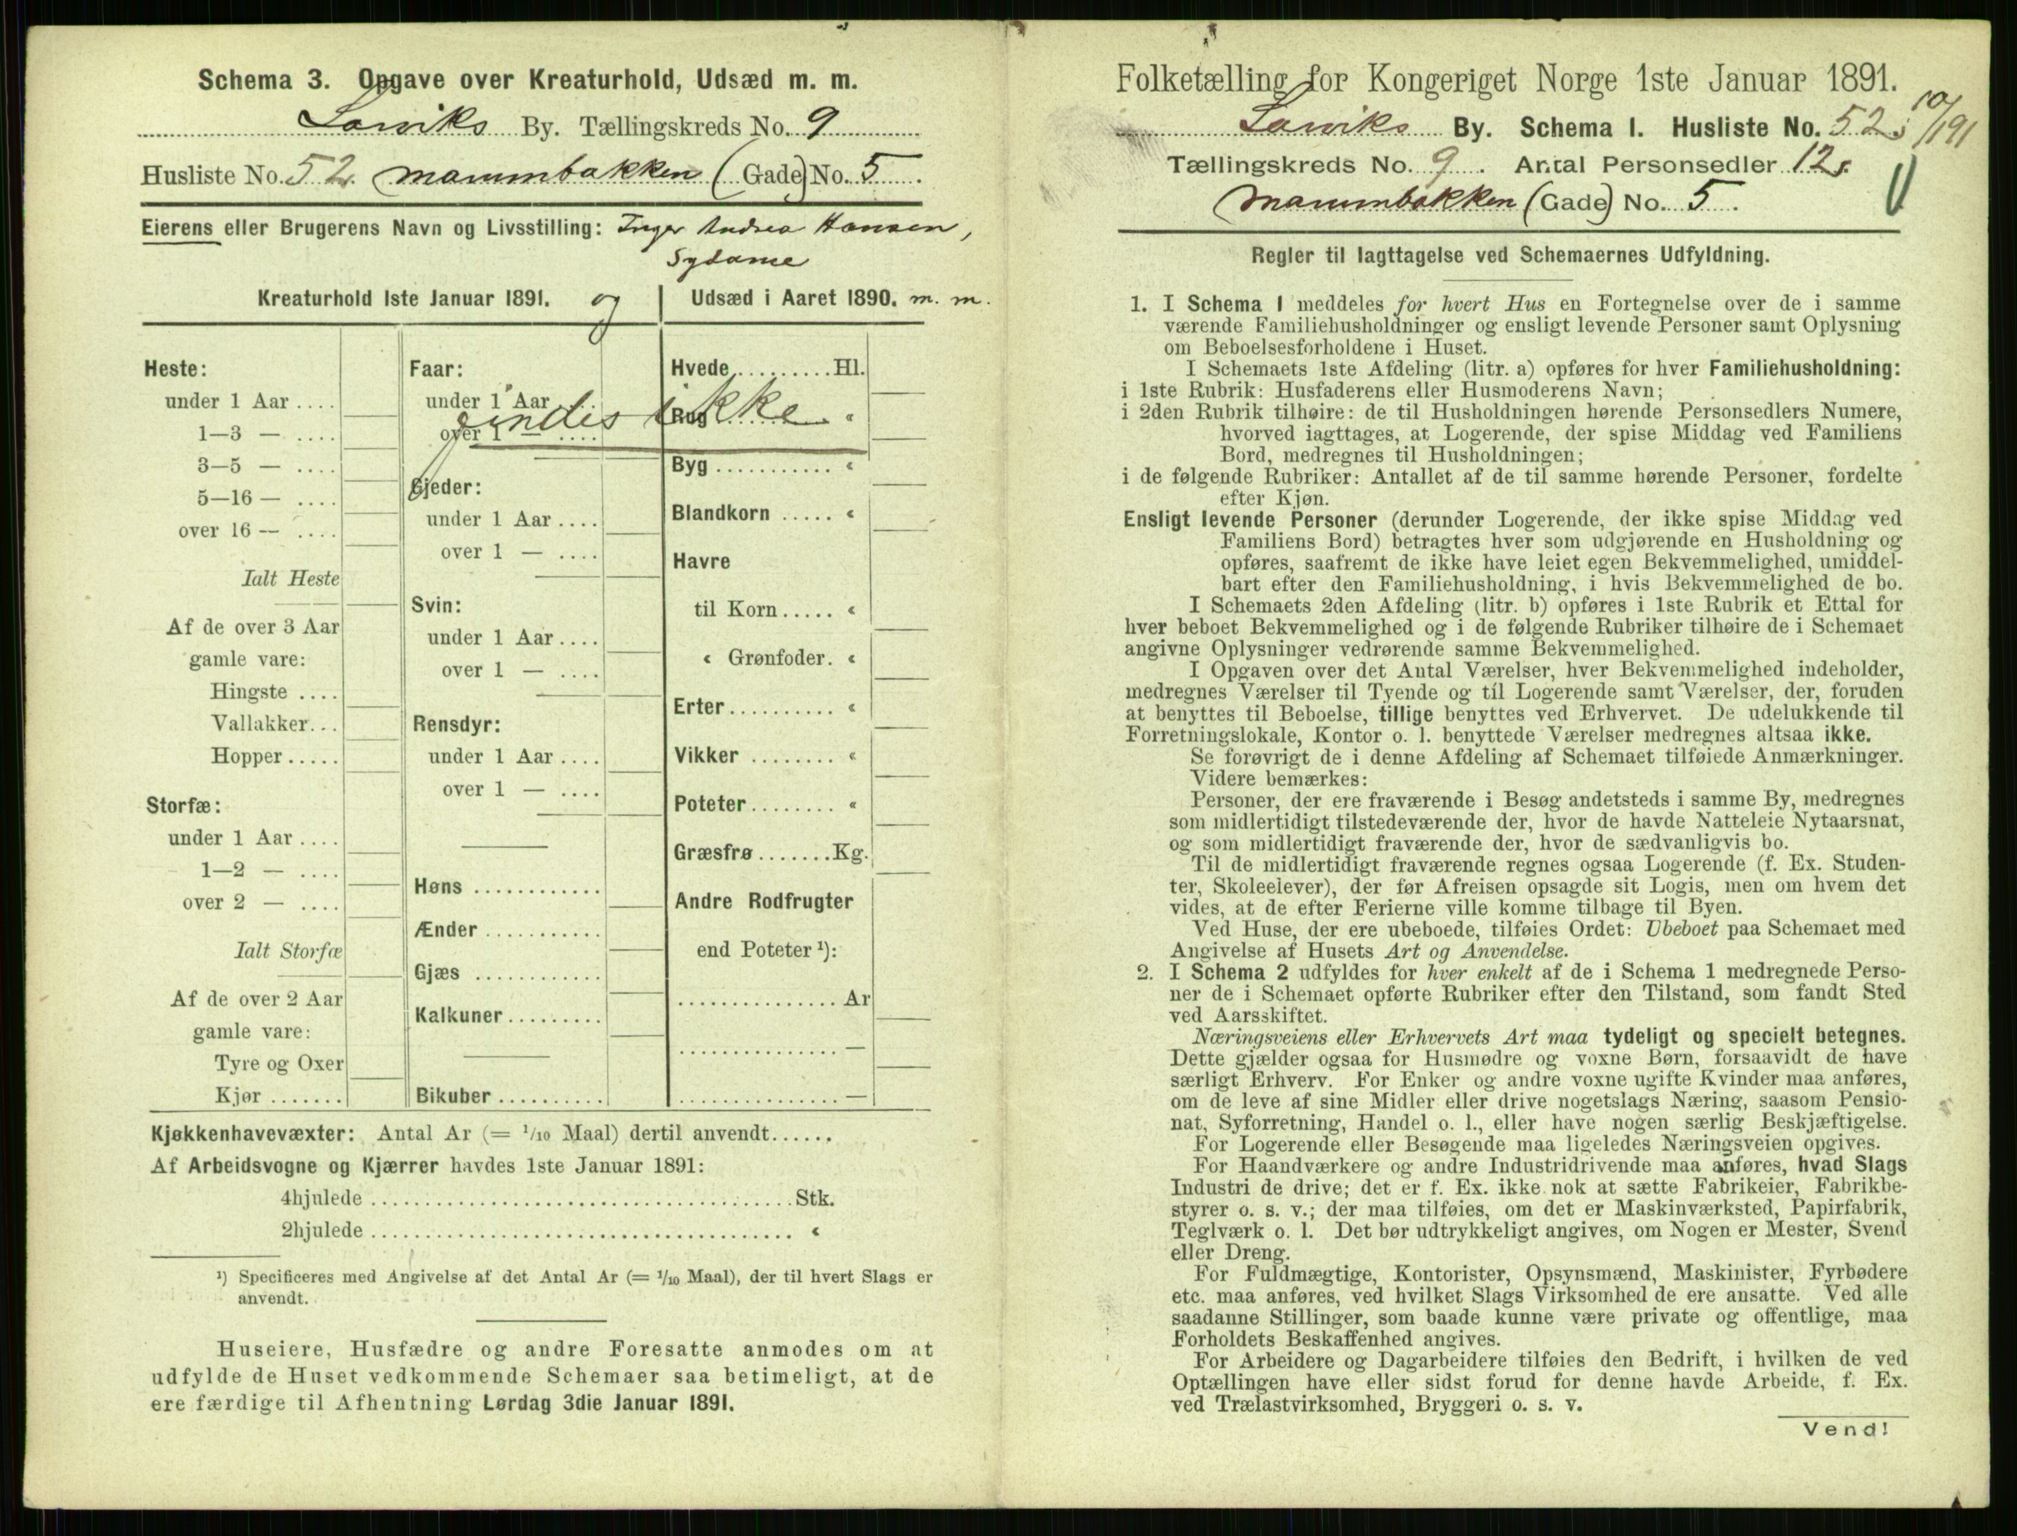 Schema 3. Opgave over Kreaturhold, Udsæd m. m.
Larviks By. Tællingskreds No. 9
Husliste No. 52. Mammbakken (Gade) No. 5.
Eierens eller Brugerens Navn og Livsstilling: Inger Andrea Hansen,
Sydame
Kreaturhold 1ste Januar 1891. og
Udsæd i Aaret 1890. m. m.
findes ikke
Heste:
under 1 Aar ....
1—3 — ....
3—5 — ....
5—16 — ....
over 16 — ....
Ialt Heste
Af de over 3 Aar
gamle vare:
Hingste ....
Vallakker...
Hopper.....
Storfæ:
under 1 Aar....
1—2 — ....
over 2 — ....
Ialt Storfæ
Af de over 2 Aar
gamle vare:
Tyre og Oxer
Kjør .......
Faar:
under 1 Aar ....
over 1 — ....
Gjeder:
under 1 Aar ....
over 1 — ....
Svin:
under 1 Aar....
over 1 — ....
Rensdyr:
under 1 Aar ....
over 1 — ....
Høns ............
Ænder ...........
Gjæs ............
Kalkuner.........
Bikuber ..........
Hvede..........Hl.
Rug .......... «
Byg ........... «
Blandkorn ..... «
Havre
til Korn..... «
« Grønfoder. «
Erter.......... «
Vikker ........ «
Poteter........ «
Græsfrø.......Kg.
Andre Rodfrugter
end Poteter ¹):
............... Ar
............... —
............... —
Kjøkkenhavevæxter: Antal Ar (= 1/10 Maal) dertil anvendt......
Af Arbeidsvogne og Kjærrer havdes 1ste Januar 1891:
4hjulede ........................................Stk.
2hjulede ........................................ «
¹) Specificeres med Angivelse af det Antal Ar (= 1/10 Maal), der til hvert Slags er
anvendt.
Huseiere, Husfædre og andre Foresatte anmodes om at
udfylde de Huset vedkommende Schemaer saa betimeligt, at de
ere færdige til Afhentning Lørdag 3die Januar 1891.
Folketælling for Kongeriget Norge 1ste Januar 1891.
Larviks By. Schema I. Husliste No. 52. 10/191
Tællingskreds No. 9. Antal Personsedler 12.
Mammbakken (Gade) No. 5.
Regler til Iagttagelse ved Schemaernes Udfyldning.
1. I Schema 1 meddeles for hvert Hus en Fortegnelse over de i samme
værende Familiehusholdninger og ensligt levende Personer samt Oplysning
om Beboelsesforholdene i Huset.
I Schemaets 1ste Afdeling (litr. a) opføres for hver Familiehusholdning:
i 1ste Rubrik: Husfaderens eller Husmoderens Navn;
i 2den Rubrik tilhøire: de til Husholdningen hørende Personsedlers Numere,
hvorved iagttages, at Logerende, der spise Middag ved Familiens
Bord, medregnes til Husholdningen;
i de følgende Rubriker: Antallet af de til samme hørende Personer, fordelte
efter Kjøn.
Ensligt levende Personer (derunder Logerende, der ikke spise Middag ved
Familiens Bord) betragtes hver som udgjørende en Husholdning og
opføres, saafremt de ikke have leiet egen Bekvemmelighed, umiddel-
bart efter den Familiehusholdning, i hvis Bekvemmelighed de bo.
I Schemaets 2den Afdeling (litr. b) opføres i 1ste Rubrik et Ettal for
hver beboet Bekvemmelighed og i de følgende Rubriker tilhøire de i Schemaet
angivne Oplysninger vedrørende samme Bekvemmelighed.
I Opgaven over det Antal Værelser, hver Bekvemmelighed indeholder,
medregnes Værelser til Tyende og til Logerende samt Værelser, der, foruden
at benyttes til Beboelse, tillige benyttes ved Erhvervet. De udelukkende til
Forretningslokale, Kontor o. l. benyttede Værelser medregnes altsaa ikke.
Se forøvrigt de i denne Afdeling af Schemaet tilføiede Anmærkninger.
Videre bemærkes:
Personer, der ere fraværende i Besøg andetsteds i samme By, medregnes
som midlertidigt tilstedeværende der, hvor de havde Natteleie Nytaarsnat,
og som midlertidigt fraværende der, hvor de sædvanligvis bo.
Til de midlertidigt fraværende regnes ogsaa Logerende (f. Ex. Studen-
ter, Skoleelever), der før Afreisen opsagde sit Logis, men om hvem det
vides, at de efter Ferierne ville komme tilbage til Byen.
Ved Huse, der ere ubeboede, tilføies Ordet: Ubeboet paa Schemaet med
Angivelse af Husets Art og Anvendelse.
2. I Schema 2 udfyldes for hver enkelt af de i Schema 1 medregnede Perso-
ner de i Schemaet opførte Rubriker efter den Tilstand, som fandt Sted
ved Aarsskiftet.
Næringsveiens eller Erhvervets Art maa tydeligt og specielt betegnes.
Dette gjælder ogsaa for Husmødre og voxne Børn, forsaavidt de have
særligt Erhverv. For Enker og andre voxne ugifte Kvinder maa anføres,
om de leve af sine Midler eller drive nogetslags Næring, saasom Pensio-
nat, Syforretning, Handel o. l., eller have nogen særlig Beskjæftigelse.
For Logerende eller Besøgende maa ligeledes Næringsveien opgives.
For Haandværkere og andre Industridrivende maa anføres, hvad Slags
Industri de drive; det er f. Ex. ikke nok at sætte Fabrikeier, Fabrikbe-
styrer o. s. v.; der maa tilføies, om det er Maskinværksted, Papirfabrik,
Teglværk o. l. Det bør udtrykkeligt angives, om Nogen er Mester, Svend
eller Dreng.
For Fuldmægtige, Kontorister, Opsynsmænd, Maskinister, Fyrbødere
etc. maa anføres, ved hvilket Slags Virksomhed de ere ansatte. Ved alle
saadanne Stillinger, som baade kunne være private og offentlige, maa
Forholdets Beskaffenhed angives.
For Arbeidere og Dagarbeidere tilføies den Bedrift, i hvilken de ved
Optællingen have eller sidst forud for denne havde Arbeide, f. Ex.
ved Trælastvirksomhed, Bryggeri o. s. v.
Vend!